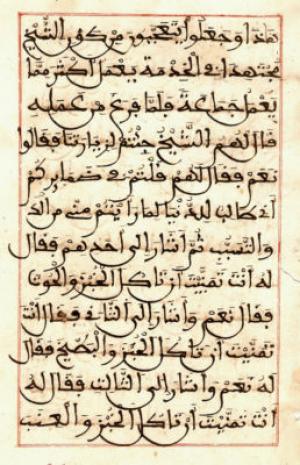 هذا وجعلوا يتعجبون من كون الشيخ
مجتهدا في الخدمة يعمل أكثر مما
يعمل جماعة فلما فرغ من عمله
قال لهم الشيخ جئتم لزيارتنا فقالوا
نعم فقال لهم قلتم في ضمايركم
طالب للدنيا لما رايتم مني
والتسبب ثم أشار إلى أحدهم فقال
له أنت تمنيت أن تاكل الخبز والحوت
فقال نعم وأشار إلى الثاني فقال أنت
تمنيت أن تاكل الخبز والبطيخ فقال
له نعم وأشار إلى الثالث فقال له
أنت تمنيت أن تاكل الخبز والعنب